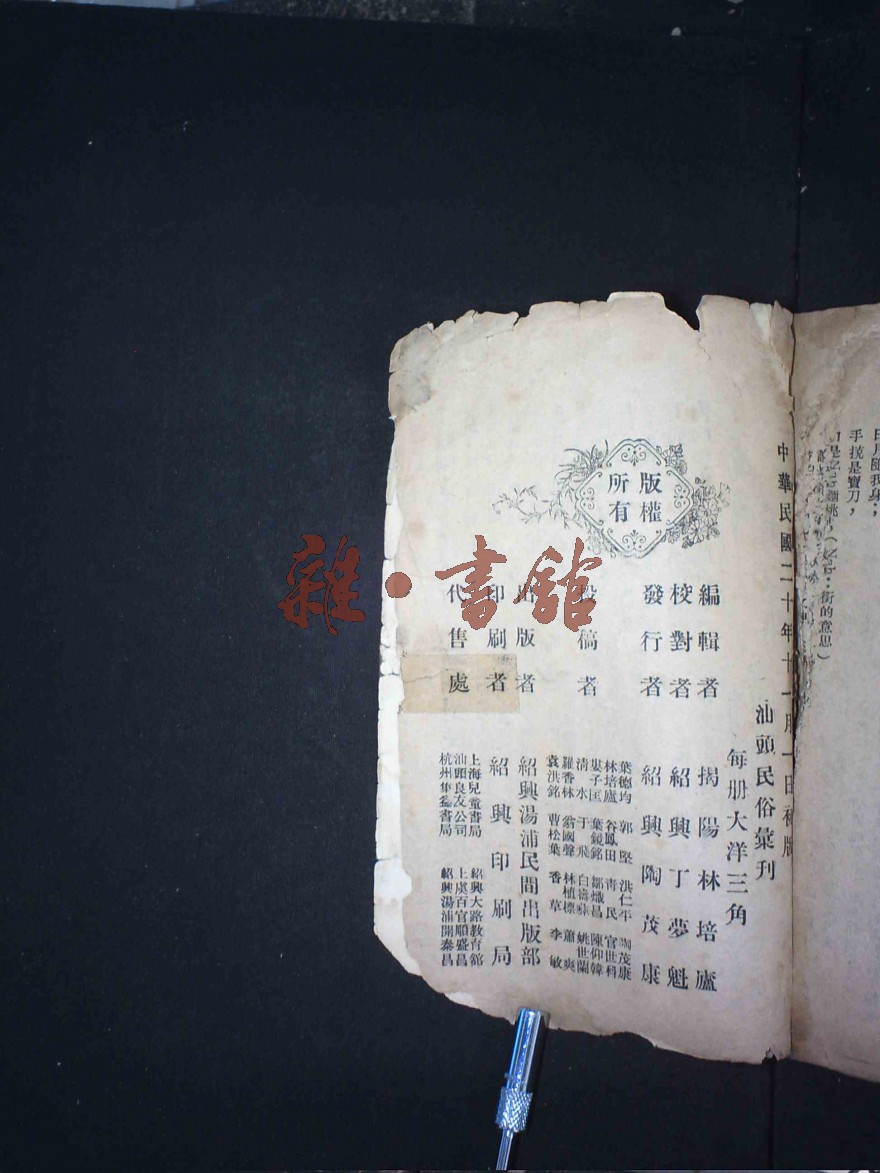 日月隨我身；
手挽是寶刀，
街的意思）
中華民國二十年十一月一日初版
汕頭民俗彙刊
每册大洋三角
編輯者 揭陽林培廬
校對者 紹興丁夢魁
發行者 紹興陶茂康
投稿者
葉德均 郭堅 洪仁平 陶茂康
林培廬 谷鳳田 靑民 官世科
婁子匡 葉鏡銘 鄒熾昌 陳仰韓
清水 于飛 白壽彝 姚世蘭
羅香林 翁國聲 林植標 蕭爽
袁洪銘 曹松葉 香草 李敏
出版者 紹興湯浦民間出版部
印刷者 紹興印刷局
代售處
上海兒童書局 紹興大路教育館
汕頭良友公司 上虞百官順盛昌
杭州隼益書局 紹興湯浦開泰昌
版權所有
雜·書館